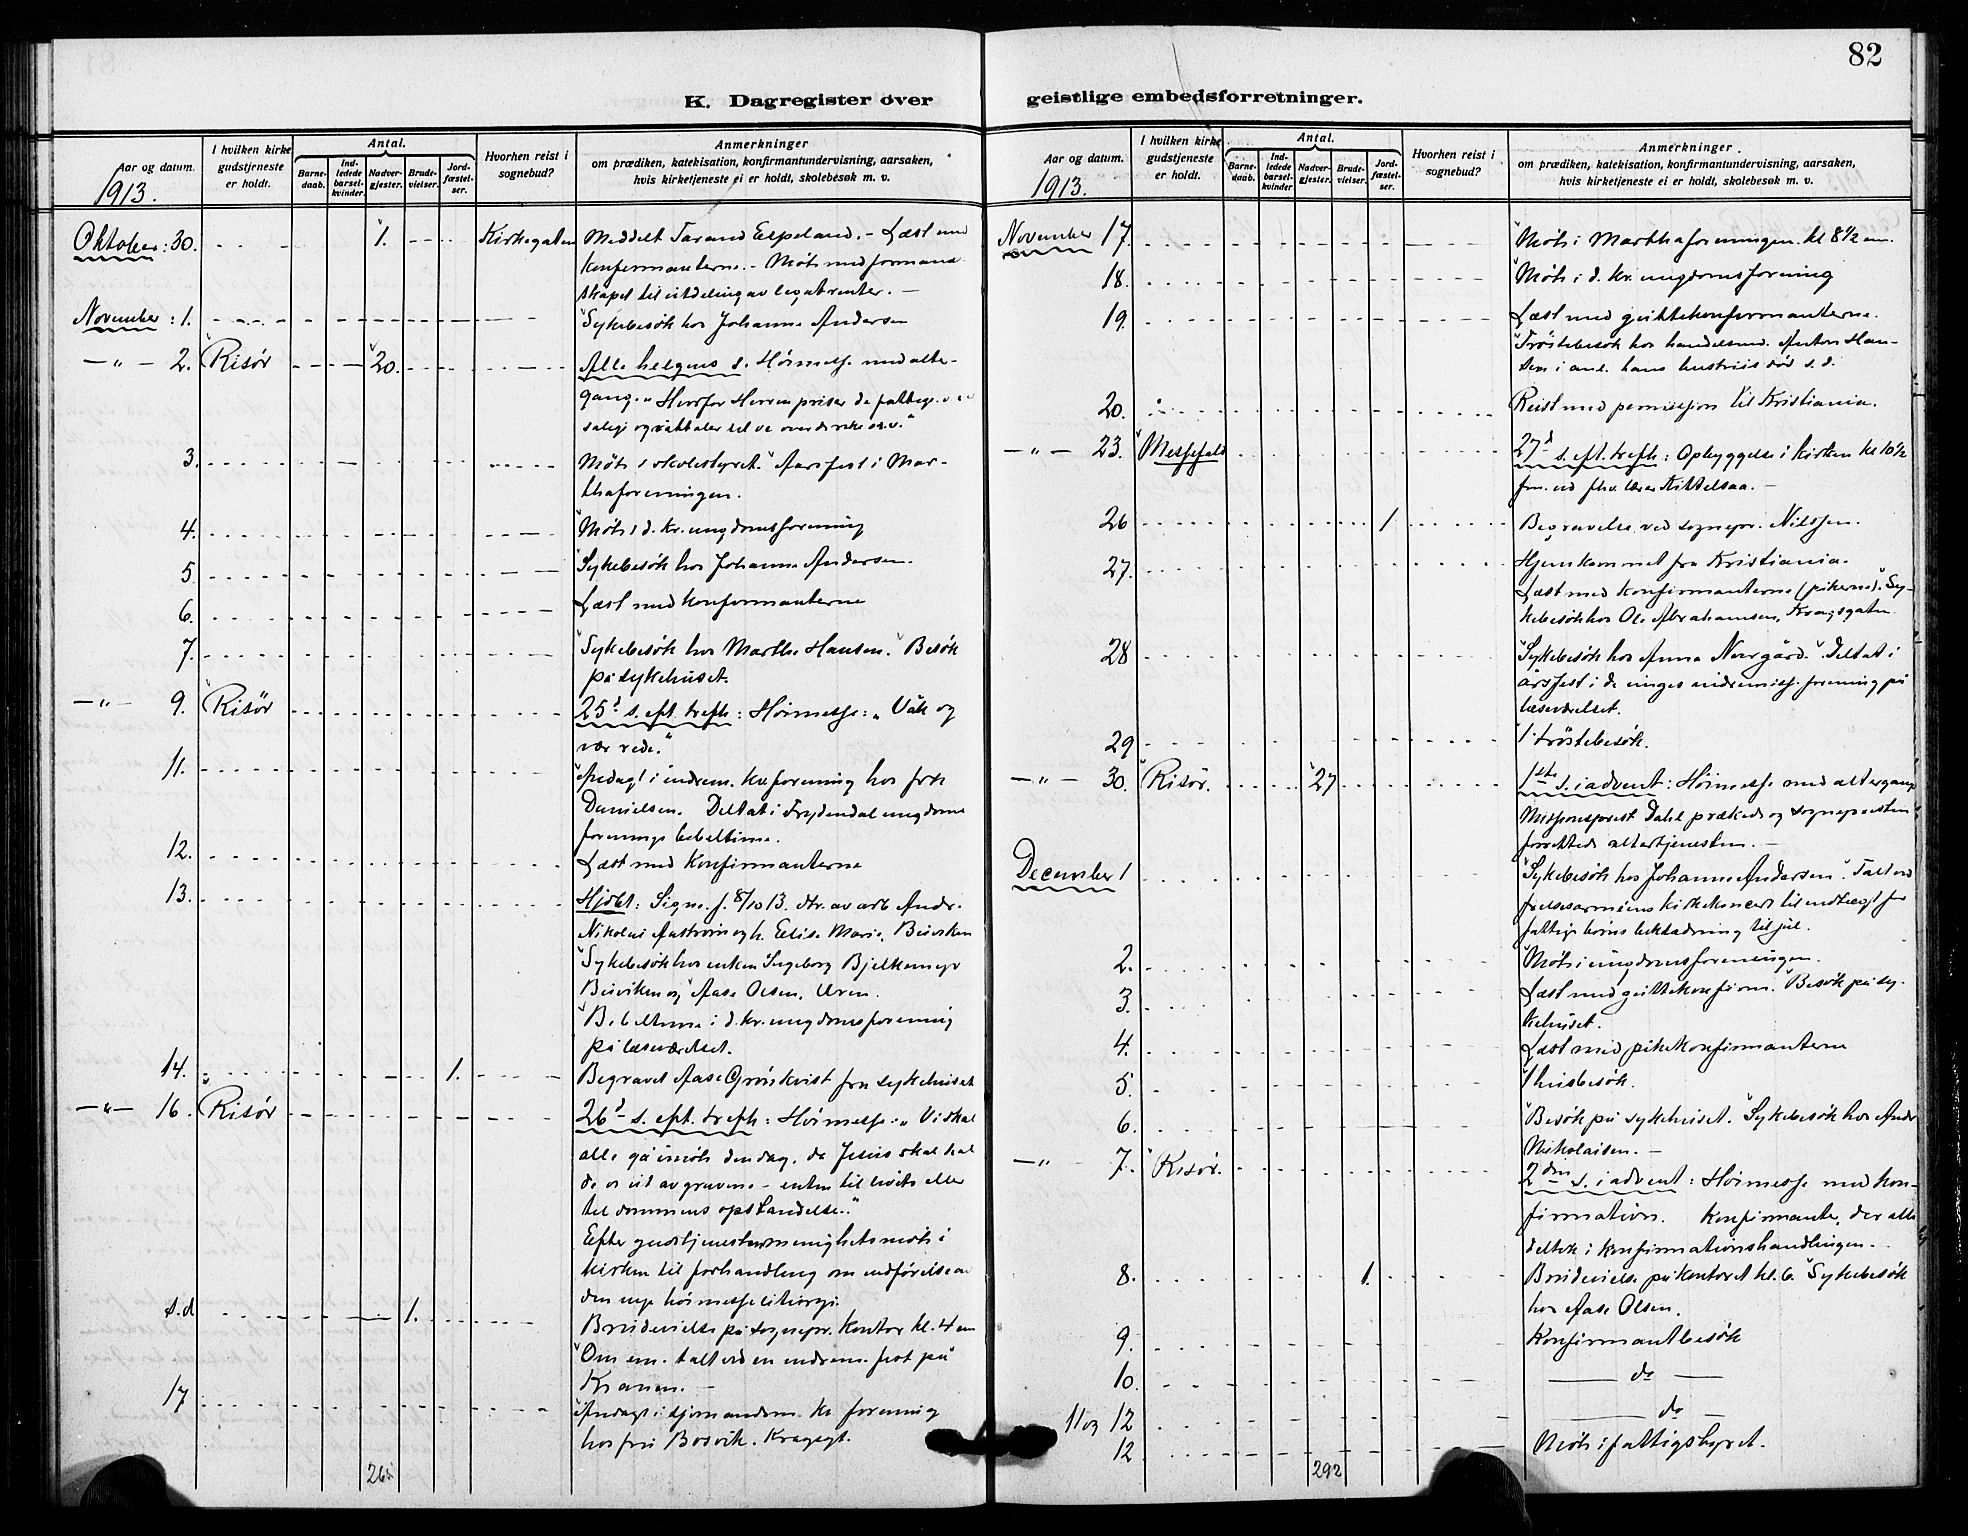 82
K. Dagregister over
geistlige embedsforretninger.
Aar og datum.
1913.
I hvilken kirke
gudstjeneste
er holdt.
Antal.
Barne-
daab.
Ind-
ledede
barsel-
kvinder.
Nadver-
gjester.
Brude-
vielser.
Jord-
fæstel-
ser.
Hvorhen reist i
sognebud?
Anmerkninger
om prædiken, katekisation, konfirmantundervisning, aarsaken,
hvis kirketjeneste ei er holdt, skolebesøk m. v.
Oktober: 30. 1. Kirkegaten Meddelt Espeland. - Læst med
konfirmanterne. - Møte med formand-
skapet til utdeling av legatrenter. -
November: 1. Sykebesøk hos Johanne Andersen
-"- 2. Risør 20. Alle helgens s. Høimesse med alter-
gang.
3. Møte i skolestyret. Aarsfest i Mar-
thaforeningen.
4. Møte i d. kr. ungdomsforening
5. Sykebesøk hos Johanne Andersen.
6. Læst med konfirmanterne
7. Sykebesøk hos Marthe Hansen. Besøk
på sykehuset.
-"- 9. Risør 25d s. eft. trefh: Høimesse: "Våk og
vær rede."
11. Andagt i indrem. kv. forening hos frk
Danielsen. Deltat i Frydendal ungdoms
forenings bibeltime.
12. Læst med konfirmanterne
13. Hjdbt: Signe f. 8/10 13. dtr. av arb Andr.
Nikolai og h. Elise Marie, Buviken
Sykebesøk hos enken Ingeborg Bjelkemyr
Buviken og Aase Olsen, Uren.
Bibeltime i d. kr. ungdomsforening
på læseværelset.
14. 1. Begravet Aase Grönkvist fra sykehuset
-"- 16. Risør 26d s. eft. trefh: Høimesse: "Vi skal
alle gå imøte den dag, da Jesus skal kal
de os ut av gravene - enten til livets eller
til dommens opstandelse."
Efter gudstjenesten menighetsmøte i
kirken til forhandling om indførelse av
den nye høimesseliturgi.
s.d 1. Brudevielse på sognepr. kontor kl. 4 em
Om em. talt ved en indrem. fest på
Kranen. -
17 Andagt i sjømandsm. kv. forening
hos fru Bosvik. Kragsgt.
265
Aar og datum.
1913.
I hvilken kirke
gudstjeneste
er holdt.
Antal.
Barne-
daab.
Ind-
ledede
barsel-
kvinder
Nadver-
gjester.
Brude-
vielser.
Jord-
fæstel-
ser.
Hvorhen reist i
sognebud?
Anmerkninger.
om prædiken, katekisation, konfirmantundervisning, aarsaken,
hvis kirketjeneste ei er holdt, skolebesøk m. v.
November 17. Møte i Marthaforeningen kl 8 1/2 em.
18. Møte i d. kr. ungdomsforening
19. Læst med guttekonfirmanterne.
Trøstebesøk hos handelsmd. Anton Han-
sen i anl. hans hustrus død s. d.
20. Reist med permission til Kristiania.
-"- 23. Messefald 27d s. eft. trefh: Opbyggelse i kirken kl 10 1/2
fm. ved fhv. lærer Kittelsaa. -
26 1 Begravelse ved sognepr. Nilssen.
27. Hjemkommet fra Kristiania.
Læst med konfirmanterne (pikerne). Sy-
kebesøk hos Ole Abrahamsen, Kragsgaten
28 Sykebesøk hos Anna Norgård. Deltat i
årsfest i de unges indremiss. forening på
læseværelset.
29 1 trøstebesøk.
-"- 30. Risør. 27 1ste s. i advent: Høimesse med altergang
Missionsprest Dahl prækede og sognepresten
forrettede altertjenesten. -
December 1 Sykebesøk hos Johanne Andersen. Talt ved
frelsesarmeens kirkekoncert til indtægt for
fattige børns beklædning til jul.
2. Møte i ungdomsforeningen.
3. Læst med guttekonfirm. Besøk på sy-
kehuset.
4. Læst med pikekonfirmanterne
5. 1 husbesøk.
6. Besøk på sykehuset. Sykebesøk hos Andr
Nikolaisen. -
-"- 7. Risør. 2den s. i advent: Høimesse med kon-
firmation. Konfirmante, der alle
deltok i konfirmationshandlingen.
8. 1. Brudevielse på kontoret kl. 6. Sykebesøk
hos Aase Olsen.
9. Konfirmantbesøk
10. do
11 og 12 do
12 Møte i fattigstyret.
292